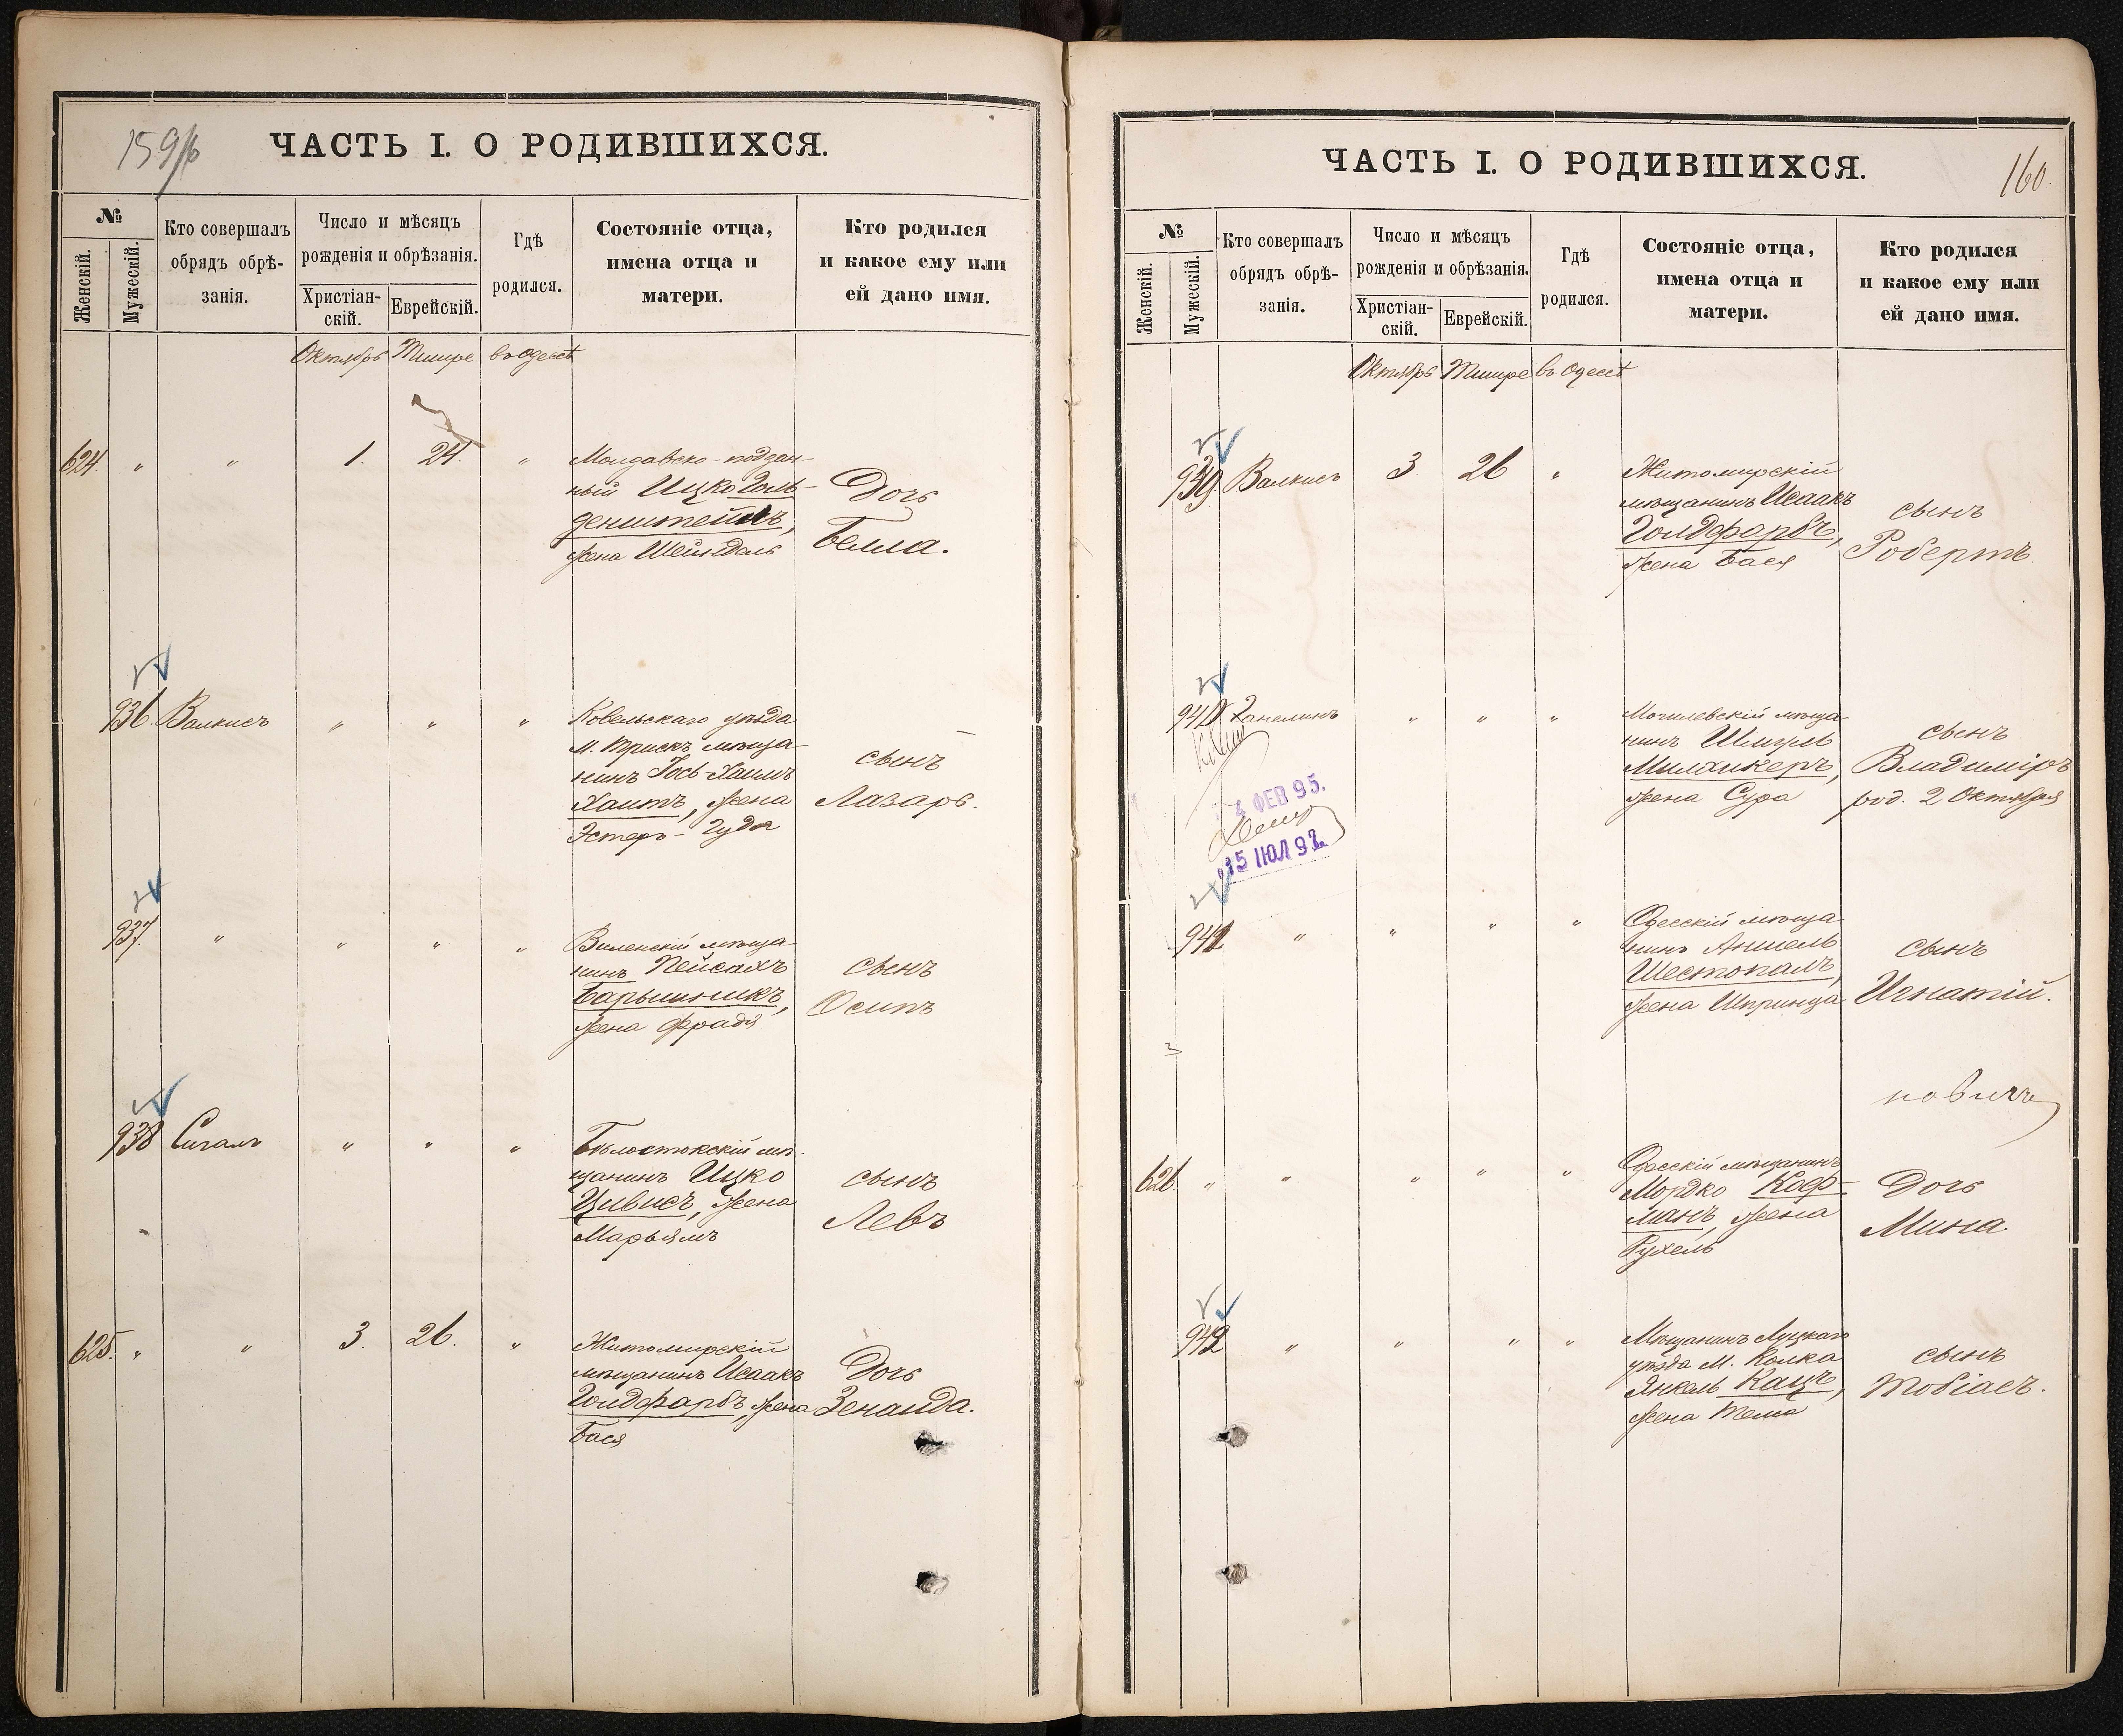 159/б
ЧАСТЬ I. О РОДИВШИХСЯ.
№
Женскій.
Мужескій.
Кто совершалъ
обрядъ обрѣ-
занія.
Число и мѣсяцъ
рожденія и обрѣзанія.
Христіан-
скій.
Еврейскій.
Гдѣ
родился.
Состояніе отца,
имена отца и
матери.
Кто родился
и какое ему или
ей дано имя.
Октябрь Тишре въ Одессѣ
624. " " 1. 24. "
Молдавско-поддан-
ный Ицко Голь-
денштейнъ,
жена Шейндель
Дочь
Белла.
936. Валкисъ " " "
Ковельскаго уѣзда
м. Трискъ мѣща-
нинъ Іось-Хаимъ
Хаитъ, жена
Эстеръ-Гуда
сынъ
Лазарь.
937. " " " "
Виленскій мѣща-
нинъ Пейсахъ
Барышникъ,
жена Фрадя
сынъ
Осипъ
938 Сигалъ " " "
Бѣлостокскій мѣ-
щанинъ Ицко
Цивисъ, жена
Марьямъ
сынъ
Левъ
625. " " 3. 26. "
Житомирскій
мѣщанинъ Исаакъ
Голдфарбъ, жена
Бася
Дочь
Зенаида.
160.
ЧАСТЬ I. О РОДИВШИХСЯ.
№
Женскій.
Мужескій.
Кто совершалъ
обрядъ обрѣ-
занія.
Число и мѣсяцъ
рожденія и обрѣзанія.
Христіан-
скій.
Еврейскій.
Гдѣ
родился.
Состояніе отца,
имена отца и
матери.
Кто родился
и какое ему или
ей дано имя.
Октябрь Тишре въ Одессѣ
939. Валкисъ 3. 26 "
Житомирскій
мѣщанинъ Исаакъ
Голдфарбъ,
жена Бася
сынъ
Робертъ.
940 Ганелинъ " " "
Могилевскій мѣща-
нинъ Шмуль
Миланкеръ,
жена Сура
сынъ
Владиміръ
род. 2 Октября
4 ФЕВ 95.
15 ІЮЛ 92.
941 " " " "
Одесскій мѣща-
нинъ Аншель
Шестопалъ,
жена Шпринца
сынъ
Игнатій.
новичъ
626. " " " " "
Одесскій мѣщанинъ
Мордко Коф-
манъ, жена
Рухель
Дочь
Мина.
942 " " " "
Мѣщанинъ Луцкаго
уѣзда м. Колка
Янкель Кацъ,
жена Тема
сынъ
Тобіасъ.